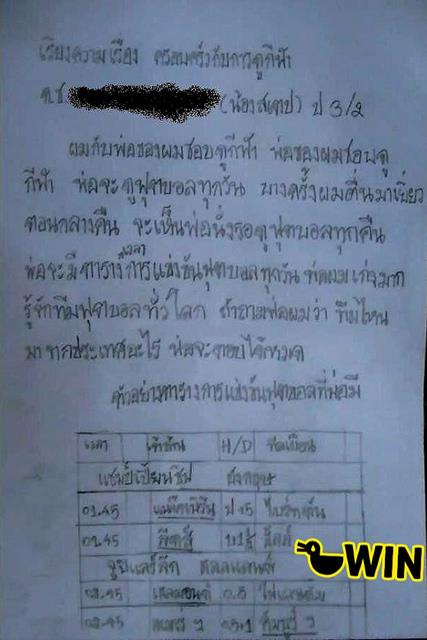 เรียงความเรื่อง ครอบครัวกับการดูกีฬา
ด.ช. (น้องสตาป) ป 3/2
ผมกับพ่อของผมชอบดูกีฬา พ่อของผมชอบดู
กีฬา พ่อจะดูฟุตบอลทุกวัน บางครั้งผมตื่นมาเยี่ยว
ตอนกลางคืน จะเห็นพ่อนั่งรอดูฟุตบอลทุกคืน
พ่อจะมีตารางเวลาการแข่งขันฟุตบอลทุกวัน พ่อผมเก่งมาก
รู้จักทีมฟุตบอลทั่วโลก ถ้าถามพ่อผมว่า ทีมไหน
มาจากประเทศอะไร พ่อจะตอบได้หมด
ตัวอย่างตารางการแข่งขันฟุตบอลที่พ่อมี
เวลา เจ้าบ้าน H/D ทีมเยือน
แชมป์เปี้ยนชิพ อังกฤษ
01.45 ป ไบรท์ตัน
01.45 ลีดส์ ฮัลล์
WIN